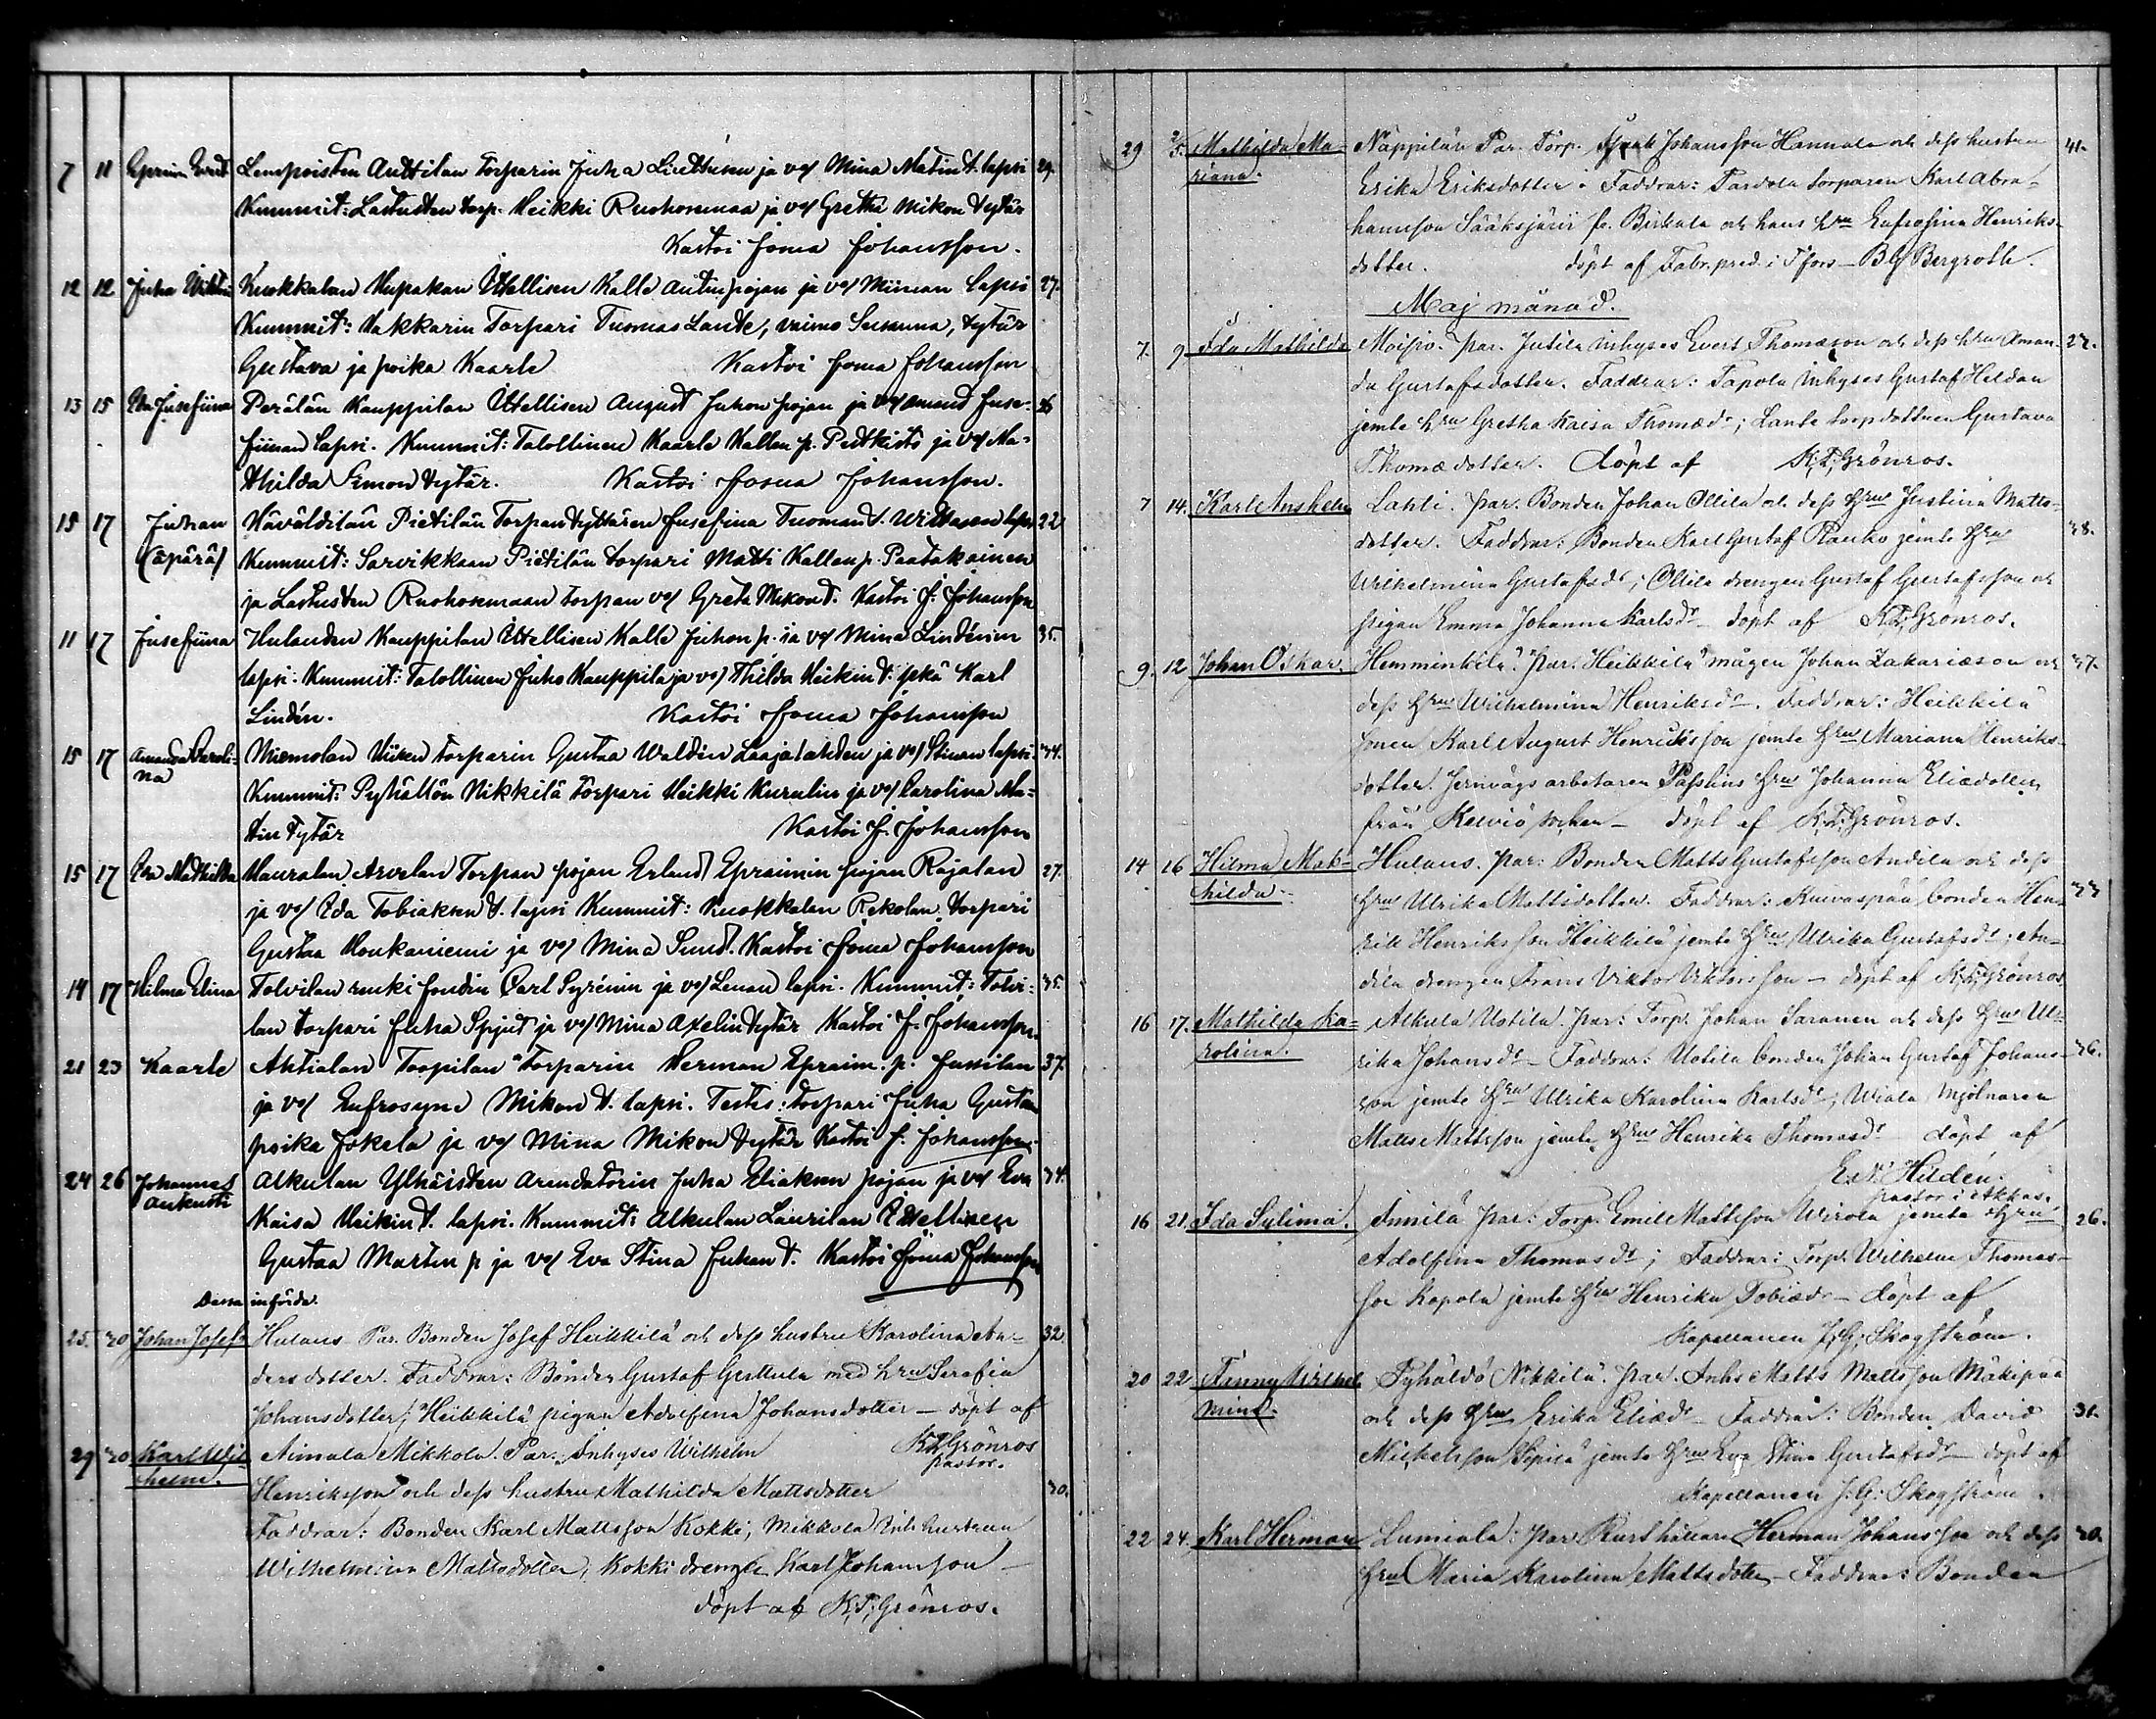 7 11 Epraim Evert Lempoisten Anttilan Torparin Juha Linttusen ja vo/ Mina Matin t. lapsi 29.
Kummit: Lastusten torp. Heikki Ruohonmaa ja vo/ Gretha Mikon tytär
Kastoi Joma Johansson.
12 12 Juha Wiktor Kuokkalan Hupakan Itsellisen Kalle Antin pojan ja vo/ Miinan lapsi 27.
Kummit: Hakkarin Torpari Tuomas Lante, vaimo Susanna, tytär
Gustava ja poika Kaarle Kastoi Joma Johansson
13 15 Eda Jusefiina Perälän Kauppilan Itsellisen August Juhon pojan ja vo/ Amand Juse- 26
fiinan lapsi. Kummit: Talollinen Kaarle Kallen p. ja vo/ Ma-
thilda Simon tytär. Kastoi Joma Johansson.
15 17 Juhan (äpärä) Hävättilän Pietilän Torpan tyttären Jusefina Tuoman t. lapsi 22
Kummit: Sarvikkaan Pietilän torpari Matti Kallen p. Paatakainen
ja Lastusten Ruohonmaan torpan vo/ Greta Mikon t. Kastoi J. Johansson
11 17 Jusefiina Hulauden Kauppilan Itsellisen Kalle Juhon p. ja vo/ Mina Lindénin 35.
lapsi. Kummit: Talollinen Juho Kauppila ja vo/ Thilda Heikin t. Karl
Lindén. Kastoi Joma Johansson
15 17 Amanda Caroli-
na Niemolan torparin Gustaa Waldén Laajalahden ja vo/ Stinan lapsi. 34.
Kummit: Pyhällön Nikkilä torpari Heikki Kurulin ja vo/ Carolina Ma-
tin tytär Kastoi J. Johansson
15 17 Eva Mathilda Hauralan Arvelan Torpan pojan Erland Epraimin pojan Rajalan 27.
ja vo/ Eda Tobiaksen t. lapsi Kummit: Kuokkalan Rekolan torpari
Gustaa Honkaniemi ja vo/ Mina Sund. Kastoi Joma Johansson
14 17 Hilma Elina Tolvilan renki Carl Syrénin ja vo/ Lenan lapsi. Kummit: Tolvi- 35.
lan torpari Juha Spjut ja vo/ Mina Axelin tytär Kastoi J. Johansson
21 23 Kaarle Ahtialan Toopilan Torparin Herman Epraim. p. Jussilan 37.
ja vo/ Eufrosyne Mikon t. lapsi. Testes: torpari Juha Gustaa
poika Jokela ja vo/ Mina Mikon tytär Kastoi J. Johansson
24 26 Johannes
Aukusti Alkulan Ylhäisten Arendatorin Juha Eliaksen pojan ja vo/ Eva 34.
Kaisa Heikin t. lapsi. Kummit: Alkulan Laurilan Itsellinen
Gustaa Martin p ja vo/ Eva Stina Juhan t. Kastoi Joma Johansson
Dessa införde.
25. 30 Johan Josef. Hulaus. Par. Bonden Josef Heikkilä och dess hustru Karolina An- 32
dersdotter. Faddrar: Bonden Gustaf Gerttula med hru Serafia
Johansdotter; Heikkilä pigan Adolfina Johansdotter — döpt af
K.T. Grönros
pastor.
29 30 Karl Wil-
helm. Aimala Mikkola. Par. Inhyses Wilhelm
Henriksson och dess hustru Mathilda Mattsdotter 30.
Faddrar: Bonden Karl Mattsson Kokki; Mikkola Inh. hustrun
Wilhelmina Mattsdotter, Kokki drengen Karl Johansson —
döpt af K.T. Grönros.
29 2/5. Mathilda Ma-
riana. Näppilän Par. Torp. Johansson Hannula och dess hustru 41.
Erika Eriksdotter. Faddrar: Tardola torparen Karl Abra-
hamsson Sääksjärvi fr. Birkala och hans hru Eufrosina Henriks-
dotter. döpt af Fabr.pred. i T:fors — B G Bergroth.
Maj månad.
7. 9 Ida Mathilda Moisio. Par. Jutila inhyses Evert Thomasson och dess hru Aman- 22.
da Gustafsdotter. Faddrar: Tapola inhyses Gustaf Heldan
jemte hru Gretha Kaisa Thomæd:r; Lante torpdottren Gustava
Thomædotter. Döpt af K.T. Grönros.
7 14. Karl Anshelm Lahti. Par. Bonden Johan Ollila och dess hru Justina Matts- 38.
dotter. Faddrar: Bonden Karl Gustaf Rauko jemte hru
Wilhelmina Gustafsd:r; Ollila drengen Gustaf Gustafsson och
pigan Emma Johanna Karlsd:r — döpt af K.T. Grönros.
9. 12 Johan Oskar. Hemminkilä. Par. Heikkilä mågen Johan Zakariæson och 37.
dess hru Wilhelmina Henriksd:r. Faddrar: Heikkilä
sonen Karl August Henriksson jemte hru Mariana Henriks-
dotter. Jernvägsarbetaren hru Johanna Eliædotter
från Kelviå socken — döpt af K.T. Grönros.
14 16 Hilma Mat-
hilda. Hulaus. Par: Bonden Matts Gustafsson Andila och dess 33
hru Ulrika Mattsdotter. Faddrar: Kuivaspää bonden Hen-
rik Henriksson Heikkilä jemte hru Ulrika Gustafsd:r; An-
dila drengen Frans Viktor Viktorsson — döpt af K.T. Grönros
16 17. Mathilda Ka-
rolina. Alkula Uotila. Par: Torp. Johan Saranen och dess hru Ul-
rika Johansd:r — Faddrar: Uotila bonden Johan Gustaf Johans- 36.
son jemte hru Ulrika Karolina Karlsd:r; Wiala Mjölnaren
Matts Mattsson jemte hru Henrika Thomasd:r döpt af
Hildén.
pastor i Akkas.
16 21. Ida Sylima. Annila Par: Torp. Emil Mattsson Wirola jemte hru 26.
Adolfina Thomasd:r; Faddrar: Torp. Wilhelm Thomas-
son Kopola jemte hru Henrika Tobiæd:r — döpt af
Kapellanen J:G: Skogström.
20 22 Fanny Wilhel-
mina. Pyhäldö Nikkilä. Par. Inhs Matts Mattsson Mäkipää
och dess hru Erika Eliæd:r — Faddrar: Bonden David 31.
Mickelsson Sipilä jemte hru Eva Stina Gustafsd:r — döpt af
Kapellanen J:G: Skogström.
22 24. Karl Herman Lumiala: Par Rusthållaren Herman Johansson och dess 20.
hru Maria Karolina Mattsdotter — Faddrar: Bonden